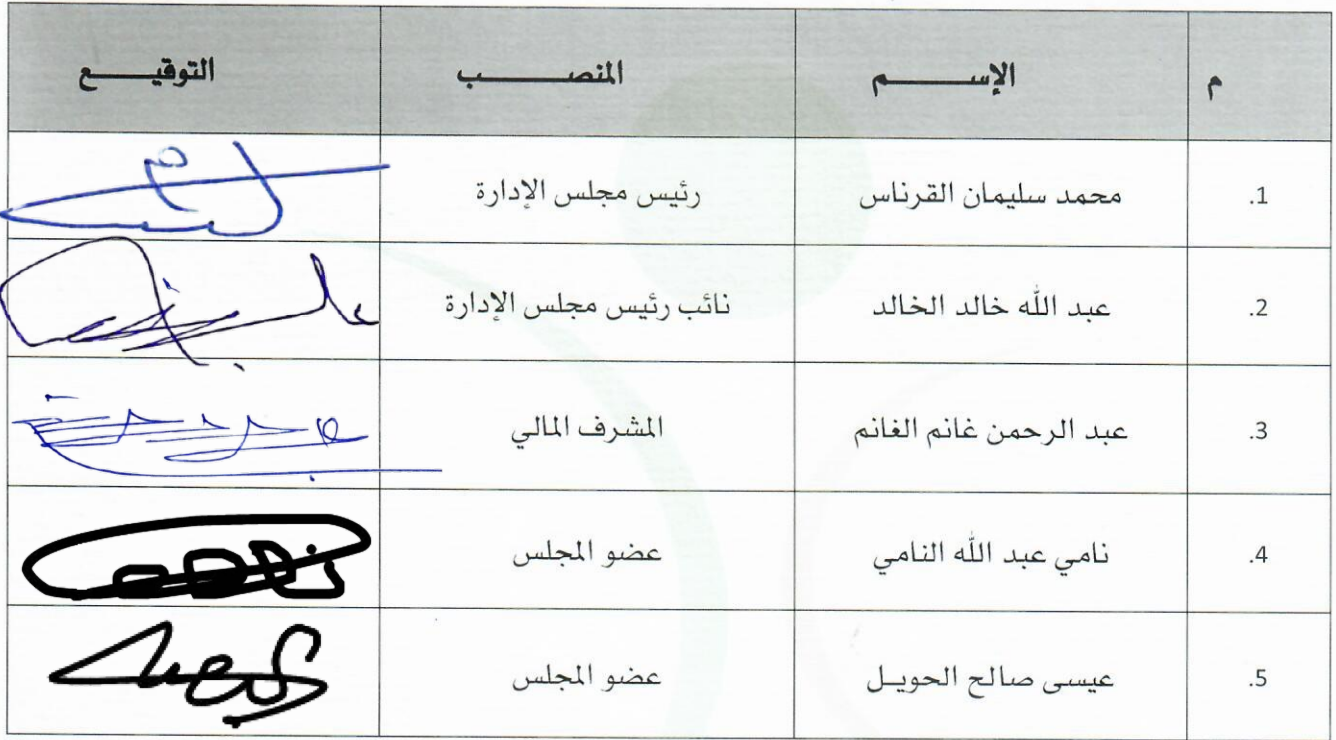 م الإســـــــم المنصـــــــــب التوقيـــــــع
1. محمد سليمان القرناس رئيس مجلس الإدارة
2. عبد الله خالد الخالد نائب رئيس مجلس الإدارة
3. عبد الرحمن غانم الغانم المشرف المالي
4. نامي عبد الله النامي عضو المجلس
5. عيسى صالح الحويـل عضو المجلس